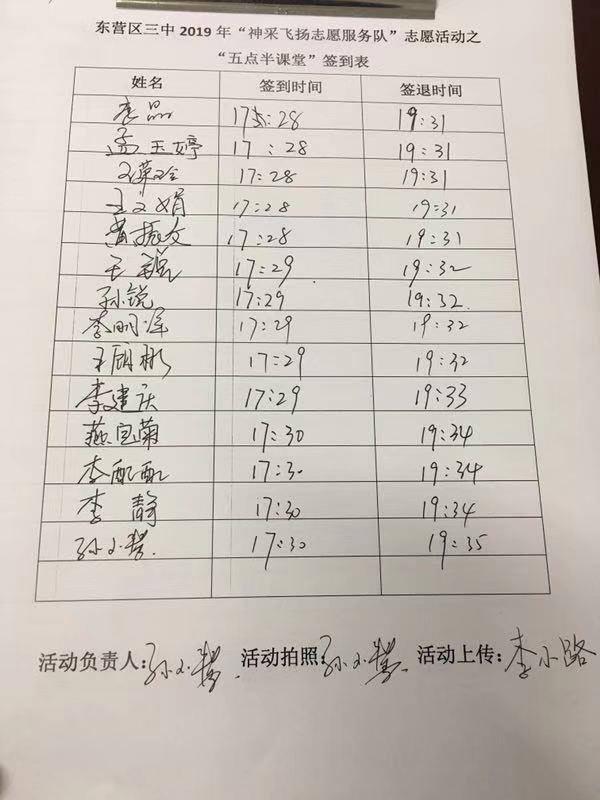 东营区三中 2019 年“神采飞扬志愿服务队”志愿活动之
“五点半课堂”签到表
姓名 签到时间 签退时间
17:28 19:31
孟玉婷 17:28 19:31
17:28 19:31
王文娟 17:28 19:31
黄振文 17:28 19:31
王 17:29 19:32
孙锐 17:29 19:32
李明泽 17:29 19:32
王 彬 17:29 19:32
李建庆 17:29 19:33
燕宝菊 17:30 19:34
李配配 17:30 19:34
李静 17:30 19:34
孙小 17:30 19:35
活动负责人:孙小 活动拍照:孙小 活动上传:李小路